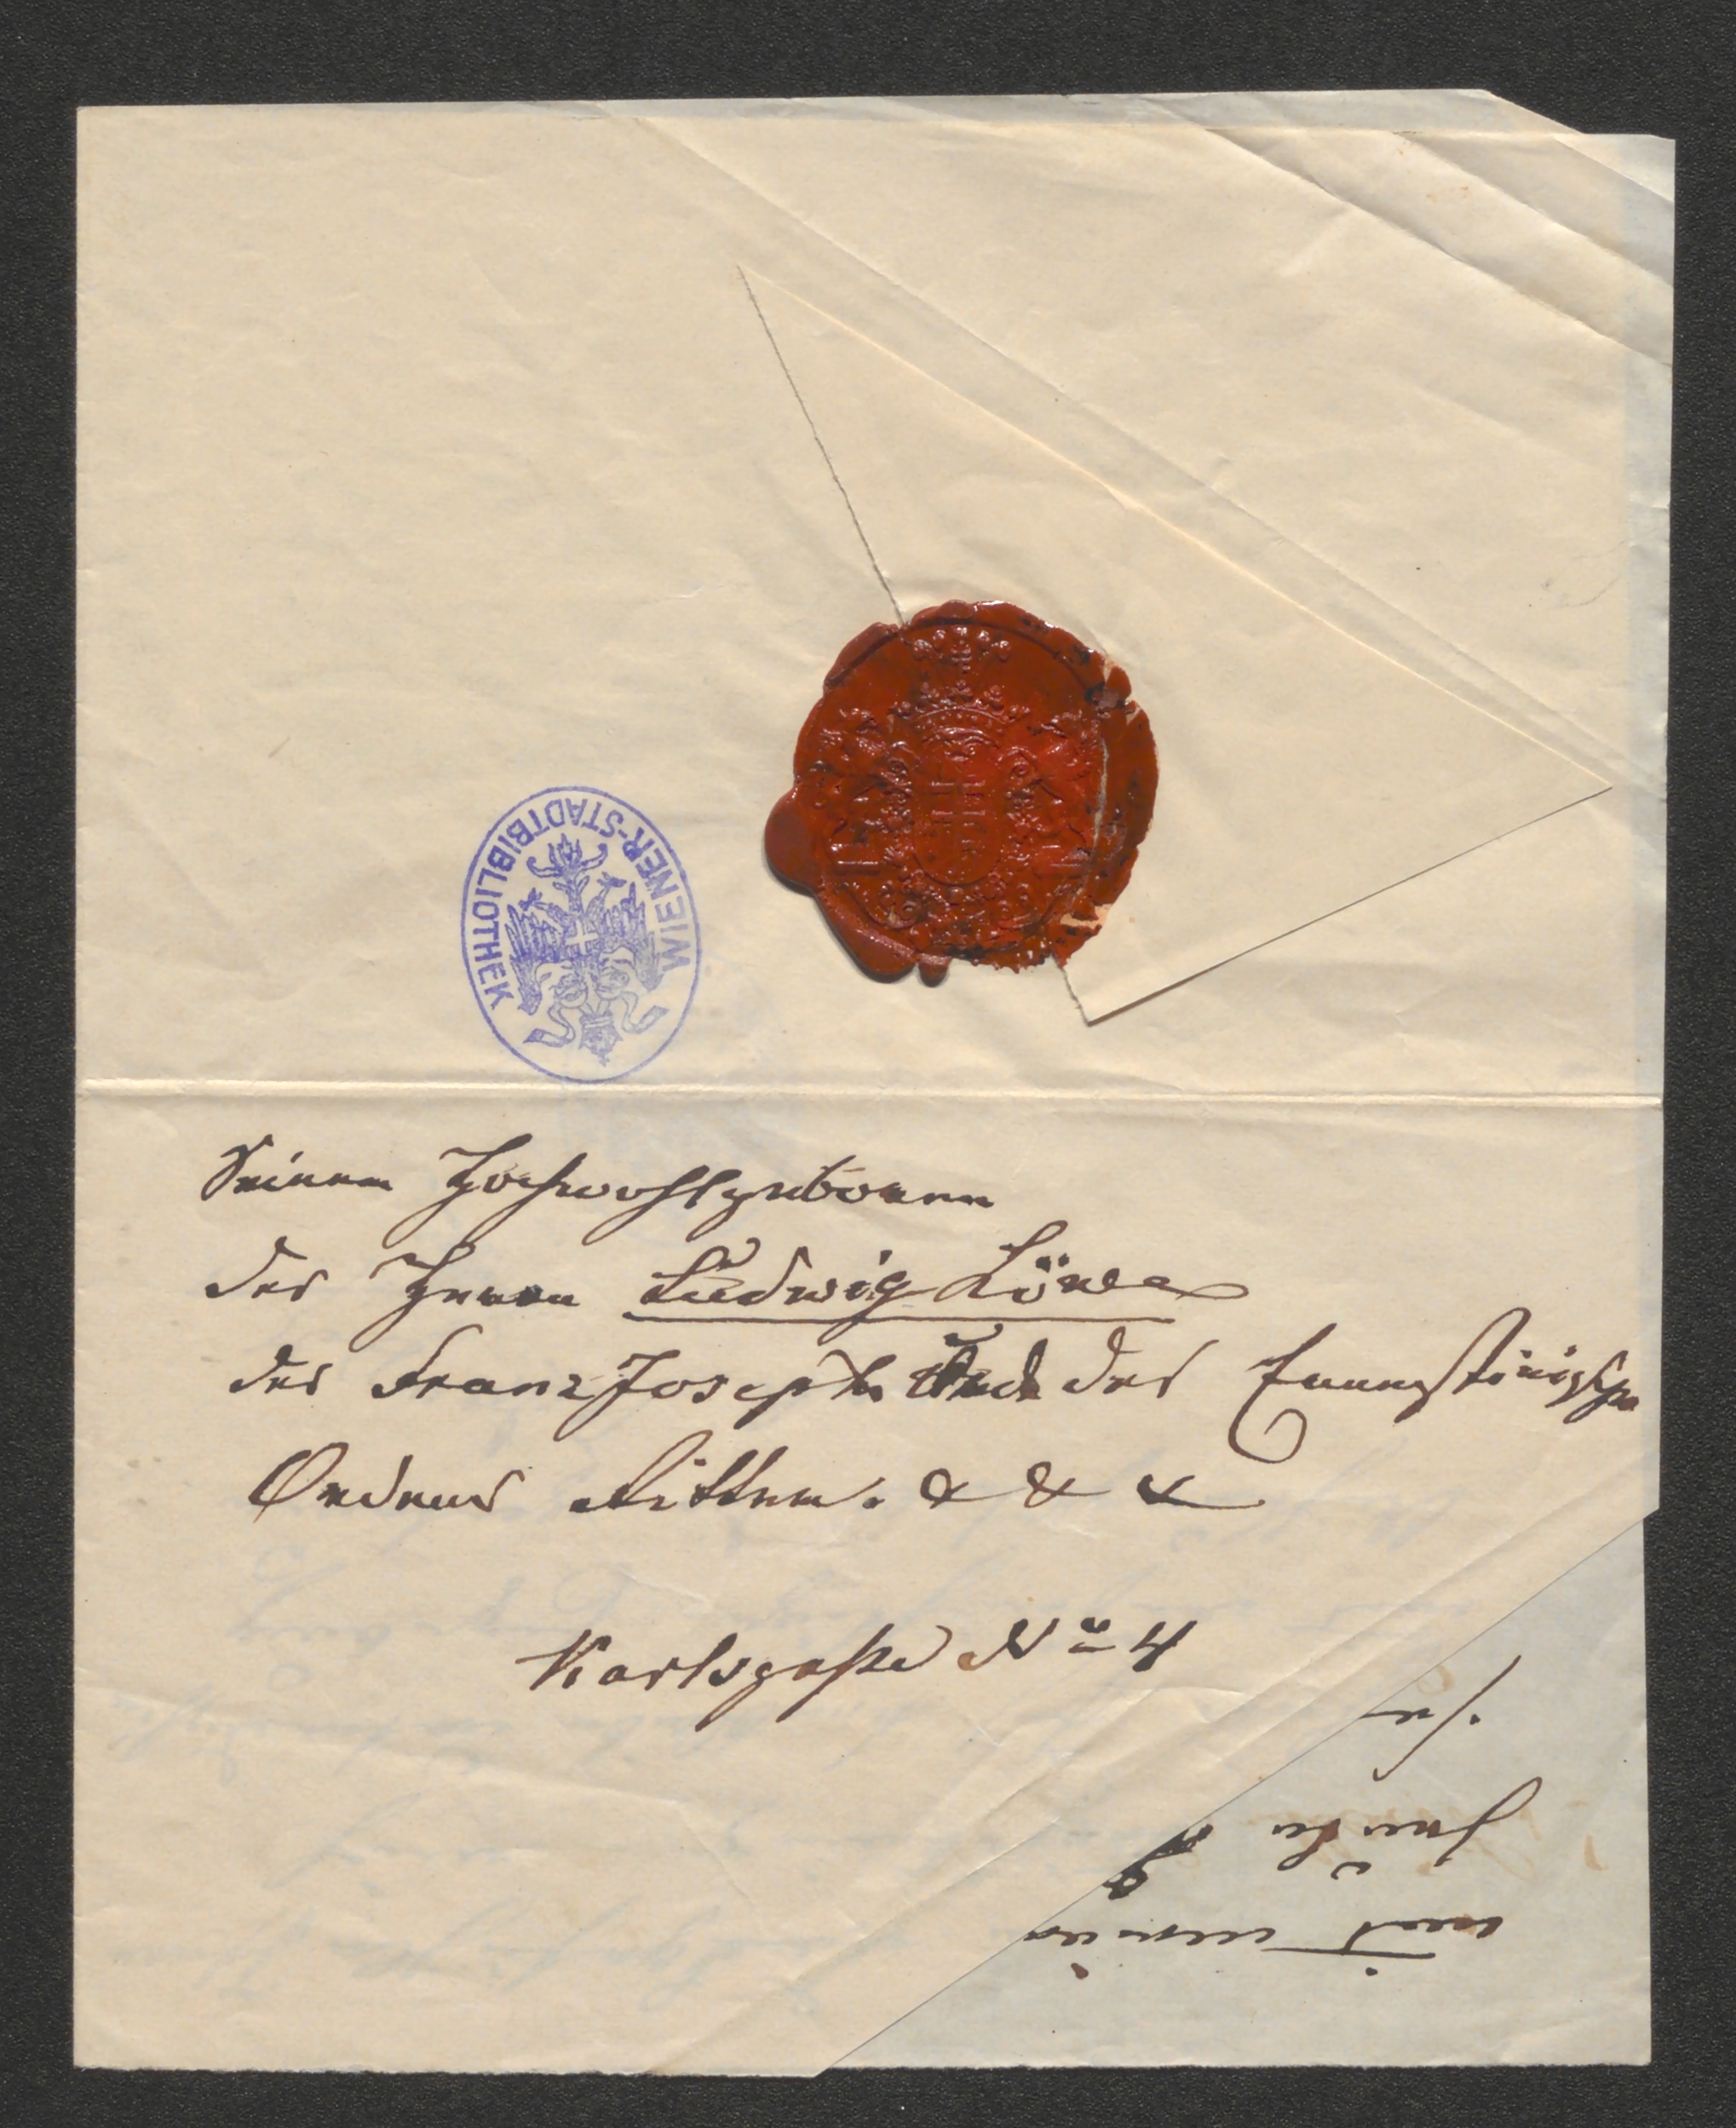 WIENER-STADTBIBLIOTHEK
Seiner Hochwohlgeboren
des Herrn Ludwig Löwe
des Franz Joseph und des Ernestinischen
Ordens Ritter. & & &
Karlsgaße No 4